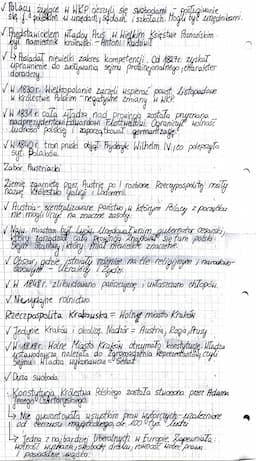 ✓ Polacy żyjące w WKP cieszyli się swobodami - posługiwanie
się j. polskim w urzędach, sądach i szkołach. Mogli być urzędnikami.
✓ Przedstawicielem władzy Prus w Wielkim Księstwie Poznańskim
był namiestnik królewski - Antoni Radziwiłł
↳ Posiadał niewielki zakres kompetencji. Od 1824r. zyskał
uprawnienie do zwoływania sejmu prowincjonalnego charakter
doradczy.
✓ W 1830r. Wielkopolanie zaczęli wspierać powst. Listopadowe
w Królestwie Polskim - negatywne zmiany w WKP.
✓ W 1831r. cała władza nad prowincją została przyznana
nadprezydentowi Edwardowi Flottwellowi. Ograniczył wolność
ludności polskiej i zapoczątkował germanizację.
✓ W 1840r. tron pruski objął Fryderyk Wilhelm IV, co polepszyło
syt. Polaków.
Zabór Austriacki
Ziemie zagarnięte przez Austrię po I rozbiorze Rzeczypospolitej nosiły
nazwę Królestwo Galicji i Lodomerii.
✓ Austria - scentralizowane państwo, w którym Polacy z początku
nie mogli liczyć na znaczne swobody.
✓ Najw. miastem był Lwów. Urzędował w nim gubernator cesarski,
który zarządzał całą prowincją. Znajdował się tam polski
Sejm Stanowy, który miał doradcze znaczenie.
✓ Obszar, gdzie istniały różnice na tle religijnym i narodowo-
ściowym - Ukraińcy i Żydzi.
✓ W 1848r. zlikwidowano pańszczyznę i uwłaszczono chłopów.
✓ Niewydajne rolnictwo
Rzeczpospolita Krakowska = Wolne miasto Kraków
✓ Jedynie Kraków i okolice. Nadzór = Austria, Rosja, Prusy
✓ W 1818r. Wolne Miasto Kraków otrzymało konstytucję. Władza
ustawodawcza należała do Zgromadzenia Reprezentantów, czyli
Sejmu. Władza wykonawcza = Senat
✓ Duża swoboda.
Konstytucja Królestwa Polskiego została stworzona przez Adama
Jerzego Czartoryskiego.
↳ Nie gwarantowała wszystkim praw wyborczych - uzależnione
od cenzusu majątkowego ok. 100 tys. ludzi
↳ Jedna z najbardziej liberalnych w Europie. Zapewniała:
wolność wyznania, swobodę druku, równość wobec prawa